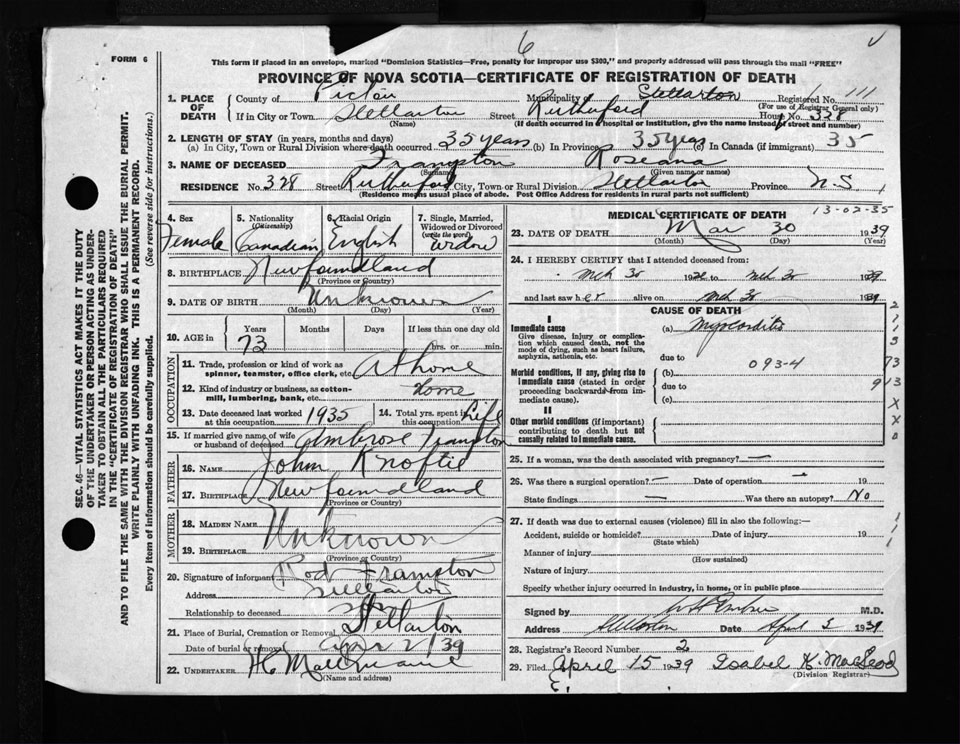 6
FORM 6
This form if placed in an envelope, marked "Dominion Statistics—Free, penalty for improper use $300," and properly addressed will pass through the mail "FREE"
PROVINCE OF NOVA SCOTIA—CERTIFICATE OF REGISTRATION OF DEATH
1. PLACE OF DEATH
County of Pictou Municipality Stellarton Registered No. 111
(For use of Registrar General only)
If in City or Town Stellarton Street Rutherford House No. 328
(Name) (If death occurred in a hospital or institution, give the name instead of street and number)
2. LENGTH OF STAY (in years, months and days)
(a) In City, Town or Rural Division where death occurred 35 years (b) In Province 35 years (c) In Canada (if immigrant) 35
3. NAME OF DECEASED Frampton Roseana
(Surname) (Given name or names)
RESIDENCE No. 328 Street Rutherford City, Town or Rural Division Stellarton Province N.S
(Residence means usual place of abode. Post Office Address for residents in rural parts not sufficient)
4. Sex
Female
5. Nationality
(Citizenship)
Canadian
6. Racial Origin
English
7. Single, Married, Widowed or Divorced
(write the word)
Widow
8. BIRTHPLACE Newfoundland
(Province or Country)
9. DATE OF BIRTH Unknown
(Month) (Day) (Year)
10. AGE in
Years Months Days If less than one day old
73 hrs. or min.
OCCUPATION
11. Trade, profession or kind of work as spinner, teamster, office clerk, etc. At home
12. Kind of industry or business, as cotton-mill, lumbering, bank, etc. Home
13. Date deceased last worked at this occupation 1935
14. Total yrs. spent in this occupation Life
15. If married give name of wife or husband of deceased Ambrose Frampton
FATHER
16. NAME John Knoftie
17. BIRTHPLACE Newfoundland
(Province or Country)
MOTHER
18. MAIDEN NAME Unknown
19. BIRTHPLACE
(Province or Country)
20. Signature of informant Rod Frampton
Address Stellarton
Relationship to deceased son
21. Place of Burial, Cremation or Removal Stellarton
Date of burial or removal Apr 2/39
22. UNDERTAKER
(Name and address)
MEDICAL CERTIFICATE OF DEATH
13-02-35
23. DATE OF DEATH Mar 30 1939
(Month) (Day) (Year)
24. I HEREBY CERTIFY that I attended deceased from:
Mch 30 19 to Mch 30 1939
and last saw her alive on Mch 30 1939
CAUSE OF DEATH
I
Immediate cause
Give disease, injury or complication which caused death, not the mode of dying, such as heart failure, asphyxia, asthenia, etc.
(a) Myocarditis
due to
Morbid conditions, if any, giving rise to immediate cause (stated in order proceeding backwards from immediate cause).
(b) 093-4
due to
(c)
II
Other morbid conditions (if important) contributing to death but not causally related to immediate cause.
25. If a woman, was the death associated with pregnancy? —
26. Was there a surgical operation? — Date of operation 19
State findings — Was there an autopsy? No
27. If death was due to external causes (violence) fill in also the following:—
Accident, suicide or homicide? Date of injury 19
(State which)
Manner of injury
(How sustained)
Nature of injury
Specify whether injury occurred in industry, in home, or in public place
Signed by M.D.
Address Stellarton Date April 3 1939
28. Registrar's Record Number 2
29. Filed April 15 1939 Isabel K. MacLeod
(Division Registrar)
SEC. 46—VITAL STATISTICS ACT MAKES IT THE DUTY
OF THE UNDERTAKER OR PERSON ACTING AS UNDER-
TAKER TO OBTAIN ALL THE PARTICULARS REQUIRED
IN THE "CERTIFICATE OF REGISTRATION OF DEATH"
AND TO FILE THE SAME WITH THE DIVISION REGISTRAR WHO SHALL ISSUE THE BURIAL PERMIT.
WRITE PLAINLY WITH UNFADING INK. THIS IS A PERMANENT RECORD.
Every item of information should be carefully supplied. (See reverse side for instructions.)